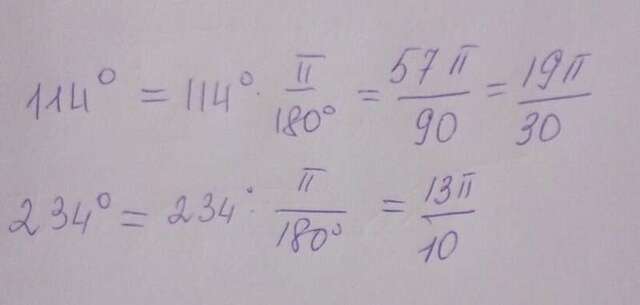 114° = 114° · π/180° = 57π/90 = 19π/30
234° = 234° · π/180° = 13π/10